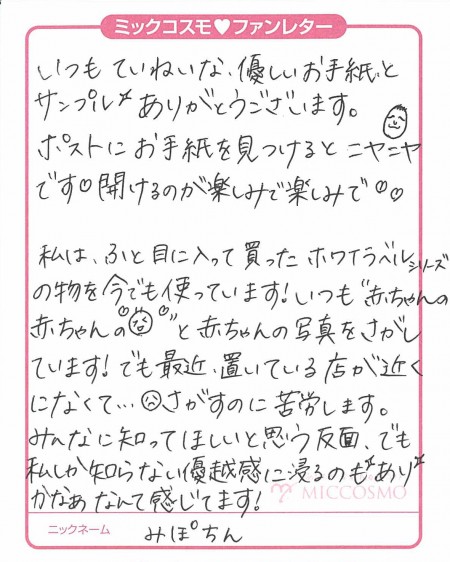 ミックコスモ♥ファンレター
いつもていねいな、優しいお手紙と
サンプル* ありがとうございます。
ポストにお手紙を見つけるとニヤニヤ
です♡開けるのが楽しみで楽しみで♡♡
私は、ふと目に入って買ったホワイラベルシリーズ
の物を今でも使っています!いつも“赤ちゃんの
赤ちゃんの♡な♡”と赤ちゃんの写真をさがし
ています!でも最近、置いている店が近く
になくて…さがすのに苦労します。
みんなに知ってほしいと思う反面、でも
私しか知らない優越感に浸るのも*あり*
かなぁなんて感じてます!
MICCOSMO
ニックネーム みぽちん